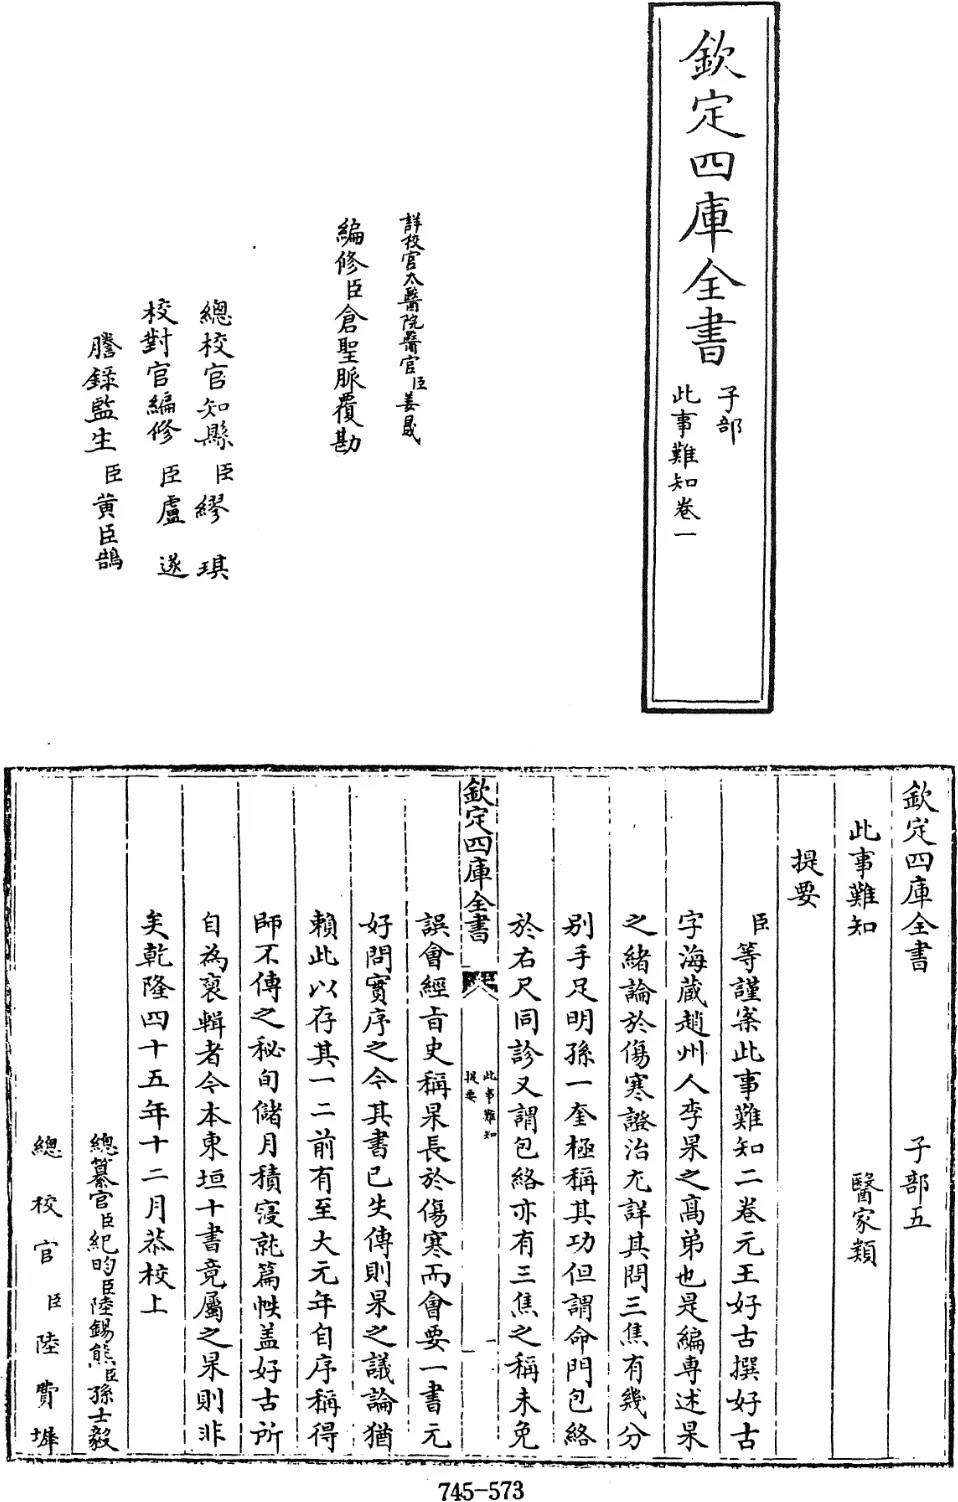 欽定四庫全書
子部
此事難知卷一
詳校官太醫院醫官臣姜晟
編修臣倉聖脈覆勘
總校官知縣臣繆琪
校對官編修臣盧遂
謄錄監生臣黃臣鵠
欽定四庫全書 子部五
此事難知 醫家類
提要
臣等謹案此事難知二卷元王好古撰好古
字海藏趙州人李杲之高弟也是編專述杲
之緒論於傷寒證治尤詳其問三焦有幾分
別手足明孫一奎極稱其功但謂命門包絡
於右尺同診又謂包絡亦有三焦之稱未免
欽定四庫全書
此事難知
提要
一
誤會經旨史稱杲長於傷寒而會要一書元
好問實序之今其書已失傳則杲之議論猶
賴此以存其一二前有至大元年自序稱得
師不傳之秘旬儲月積寖就篇帙盖好古所
自為裒輯者今本東垣十書竟屬之杲則非
矣乾隆四十五年十二月恭校上
總纂官臣紀昀臣陸錫熊臣孫士毅
總校官臣陸費墀
745-573